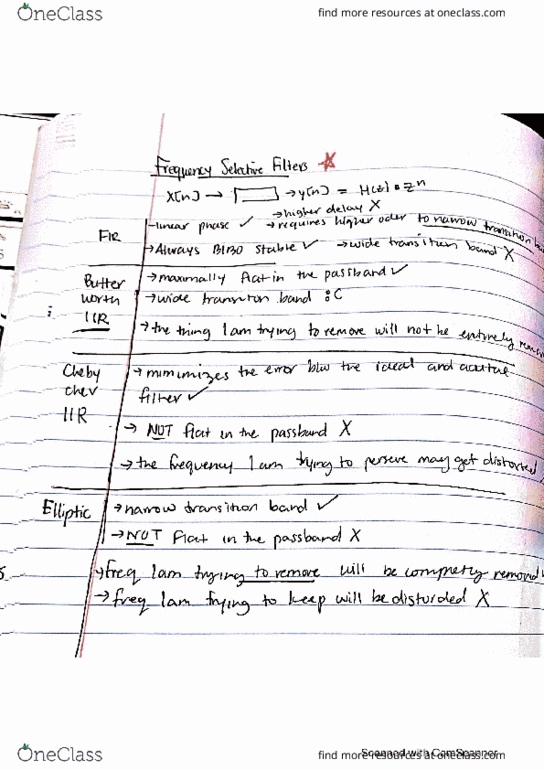 OneClass
find more resources at oneclass.com
Frequency Selective Filters
X[n] → → y[n] = H(z) • z^n
→ higher delay X
FIR
- linear phase ✓ → requires higher oder to narrow transition
→ Always BIBO stable ✓ → wide transition band X
Butter
worth
IIR
→ maximally flat in the passband ✓
→ wide transition band :C
→ the thing I am trying to remove will not be entirely
Cheby
chev
IIR
→ mimimizes the error b/w the ideal and
filter ✓
→ NOT flat in the passband X
→ the frequency I am trying to perseve may get distorted
Elliptic
→ narrow transition band ✓
→ NOT flat in the passband X
→ freq I am trying to remove will be completly removed
→ freq I am trying to keep will be disturded X
Scanned with CamScanner
OneClass
find more resources at oneclass.com